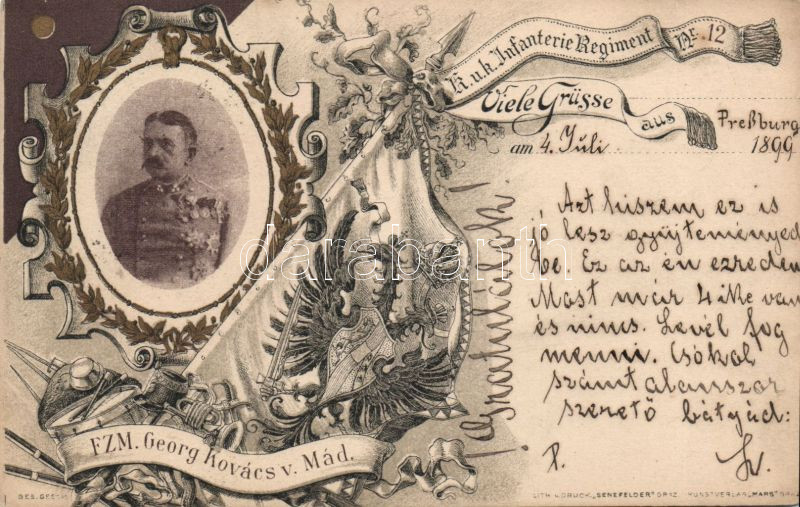 K.u.k. Infanterie Regiment Nr. 12
Viele Grüsse aus Preßburg
am 4. Juli 1899
Gratulálok!
Azt hiszem ez is
jó lesz gyüjteményed
be. Ez az én ezredem
Most már 4 ike van
és nincs. Levél fog
menni. Csókol
számtalanszor
szerető bátyád:
FZM. Georg Kovács v. Mád.
GES. GESCH.
LITH. u. DRUCK „SENEFELDER" GRAZ KUNSTVERLAG „MARS" GRAZ
darabanth.com